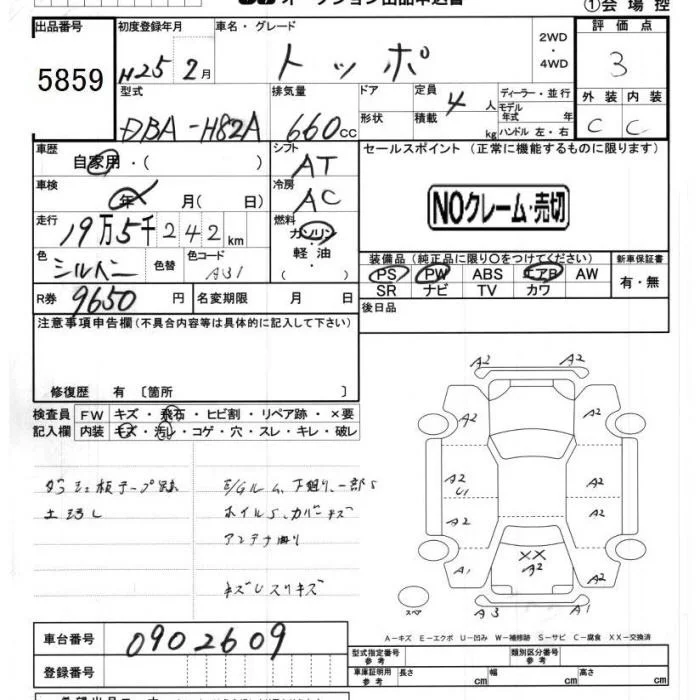 オークション出品申込書
①会場控
出品番号 5859
初度登録年月 H25 2月
車名・グレード トッポ
2WD・4WD
評価点 3
外装 C 内装 C
型式 DBA-H82A
排気量 660cc
ドア 形状
定員 4人
積載 kg
ディーラー・並行
モデル年式 年
ハンドル 左・右
車歴 自家用・( )
シフト AT
セールスポイント (正常に機能するものに限ります)
車検 年 月( 日)
冷房 AC
NOクレーム・売切
走行 19万5千242km
燃料 ガソリン・軽油・( )
色 シルバー 色替 色コード A31
装備品(純正品に限り○をつけてください)
PS PW ABS エアB AW
SR ナビ TV カワ
新車保証書 有・無
R券 9650円 名変期限 月 日
後日品
注意事項申告欄(不具合内容等は具体的に記入して下さい)
修復歴 有〔箇所 〕
検査員記入欄 FW キズ・飛石・ヒビ割・リペア跡・×要
内装 キズ・汚レ・コゲ・穴・スレ・キレ・破レ
ダッシュ板テープ跡
E/Gルーム、下廻り、一部S
ホイルS、カバーキズ
アンテナ曲り
キズUスリキズ
A2 A2
A2 A2
A2 U1 A2
A2 A2
A1 XX A2 A1
スペア A3 A1
A-キズ E-エクボ U-凹み W-補修跡 S-サビ C-腐食 XX-交換済
車台番号 0902609
型式指定番号 参考 類別区分番号 参考
登録番号
車庫証明用 参考 長さ cm 幅 cm 高さ cm